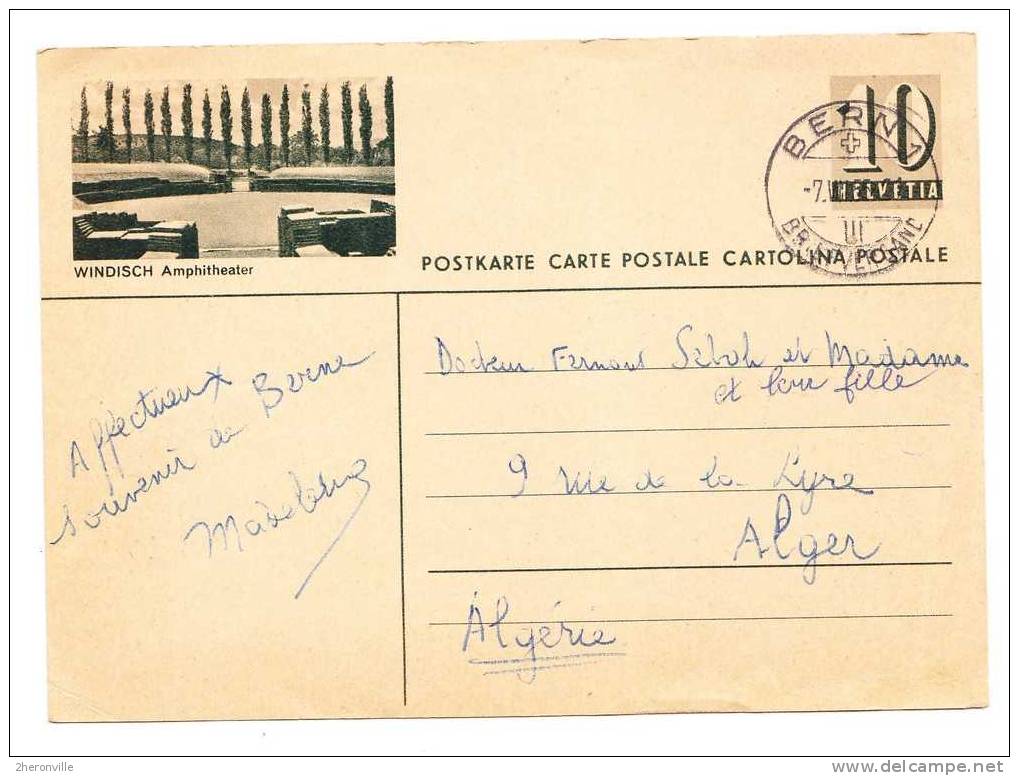 WINDISCH Amphitheater
10
HELVETIA
BERN 1
-7.
III
POSTKARTE CARTE POSTALE CARTOLINA POSTALE
Affectueux
souvenir de Berne
Docteur Fernand et Madame
et leur fille
9 rue de la Lyre
Alger
Algérie
2heronville
www.delcampe.net